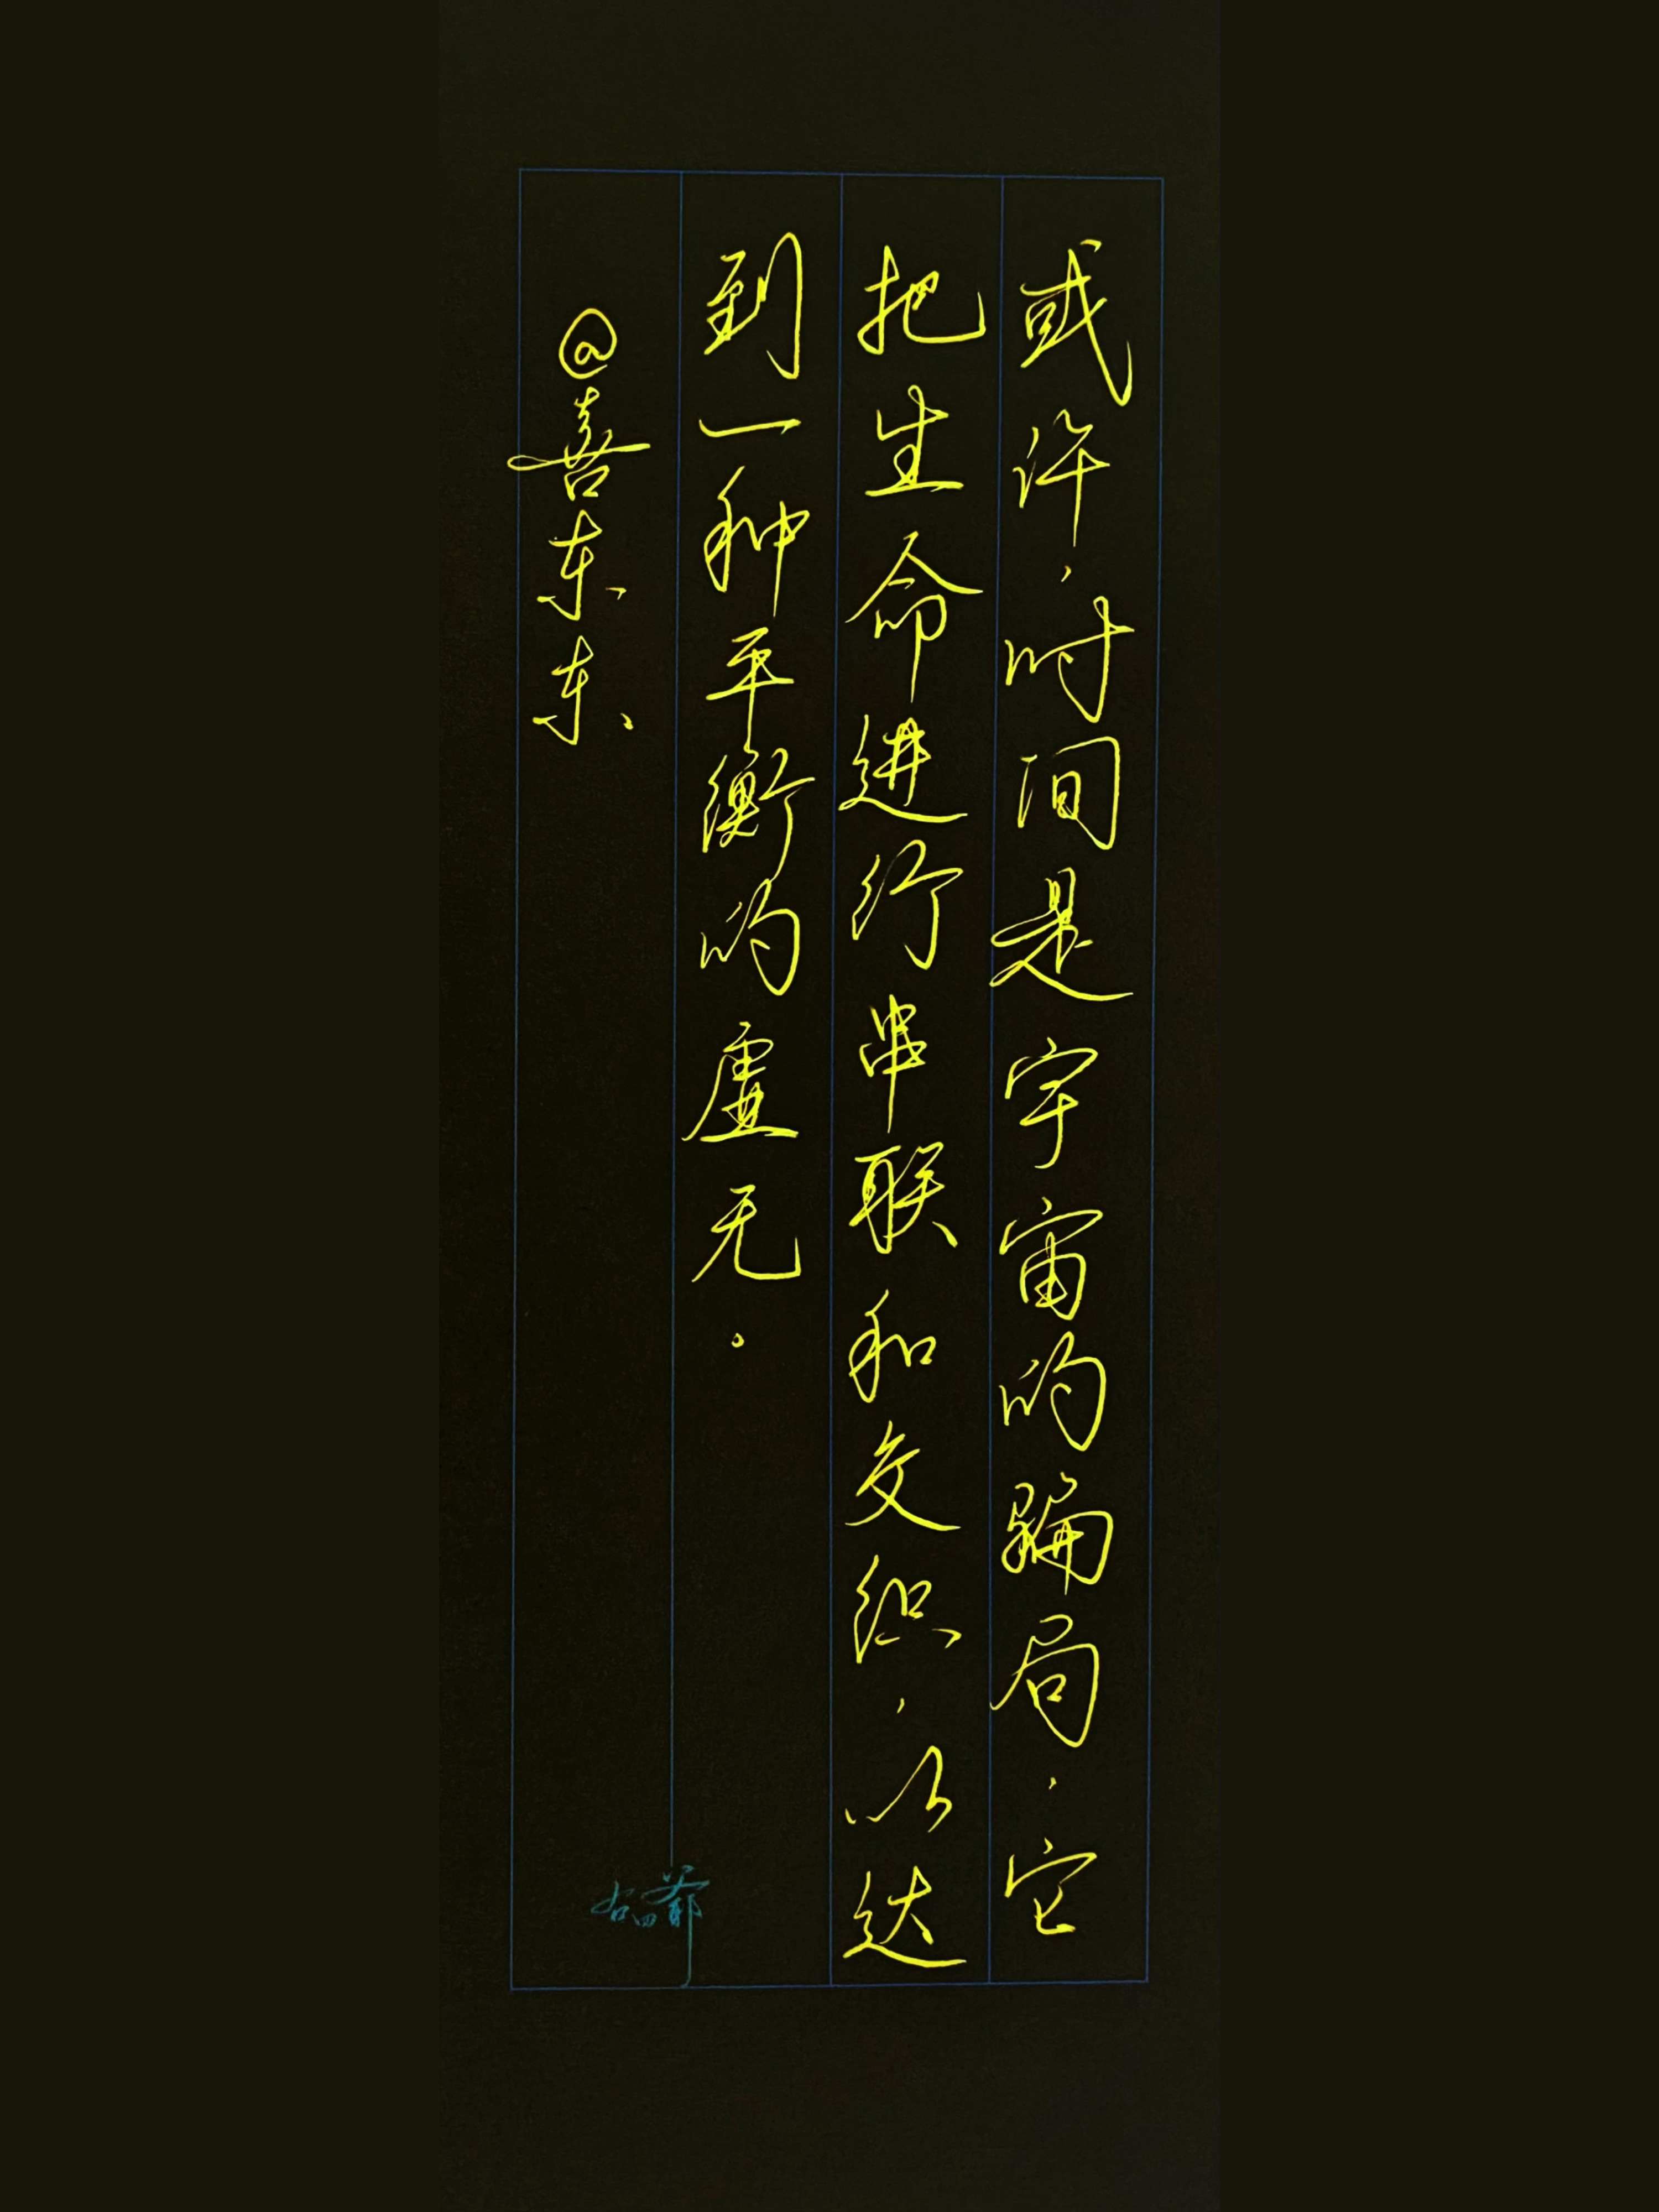 或许，时间是宇宙的骗局，它
把生命进行串联和交织，以达
到一种平衡的虚无。
@喜东东